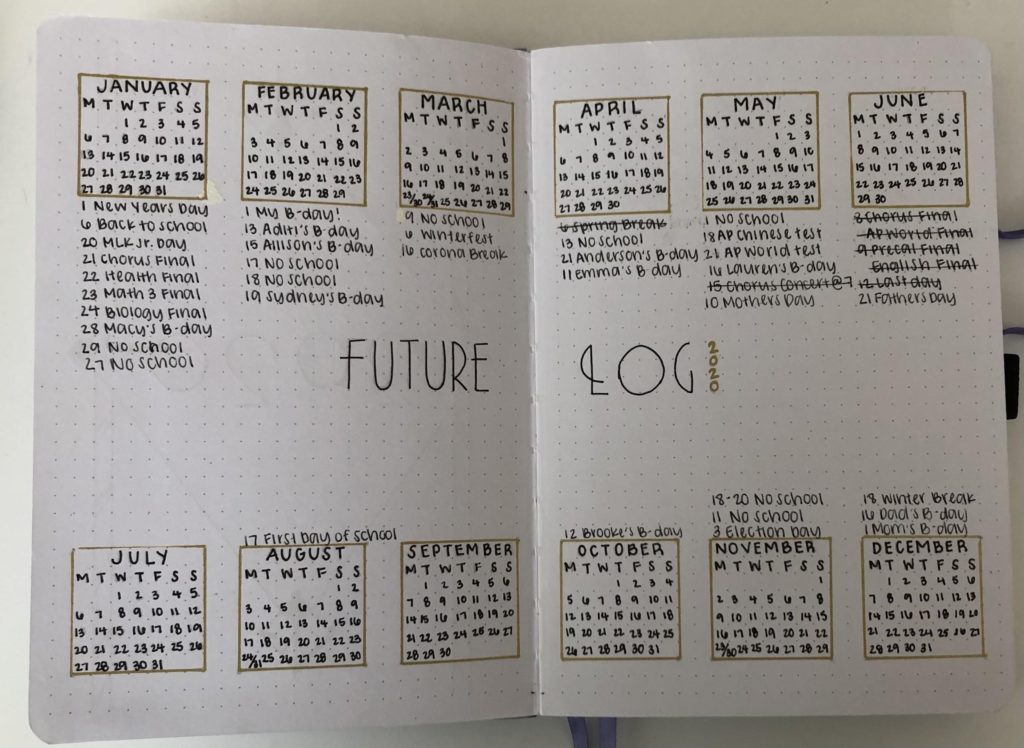 JANUARY
M T W T F S S
1 2 3 4 5
6 7 8 9 10 11 12
13 14 15 16 17 18 19
20 21 22 23 24 25 26
27 28 29 30 31
1 New Years Day
6 Back to school
20 MLK Jr. Day
21 Chorus Final
22 Health Final
23 Math 3 Final
24 Biology Final
28 Macy's B-day
29 No school
27 No school
FEBRUARY
M T W T F S S
1 2
3 4 5 6 7 8 9
10 11 12 13 14 15 16
17 18 19 20 21 22 23
24 25 26 27 28 29
1 My B-day!
13 Aditi's B-day
15 Allison's B-day
17 No school
18 No school
19 Sydney's B-day
MARCH
M T W T F S S
1
2 3 4 5 6 7 8
9 10 11 12 13 14 15
16 17 18 19 20 21 22
23/30 24/31 25 26 27 28 29
9 No school
6 Winterfest
16 corona Break
APRIL
M T W T F S S
1 2 3 4 5
6 7 8 9 10 11 12
13 14 15 16 17 18 19
20 21 22 23 24 25 26
27 28 29 30
6 Spring Break
13 No school
21 Anderson's B-day
11 Emma's B-day
MAY
M T W T F S S
1 2 3
4 5 6 7 8 9 10
11 12 13 14 15 16 17
18 19 20 21 22 23 24
25 26 27 28 29 30 31
1 No school
18 AP Chinese test
21 AP World test
16 Lauren's B-day
15 Chorus Concert@7
10 Mothers Day
JUNE
M T W T F S S
1 2 3 4 5 6 7
8 9 10 11 12 13 14
15 16 17 18 19 20 21
22 23 24 25 26 27 28
29 30
8 Chorus Final
AP World Final
9 Precal Final
English Final
12 Last day
21 Fathers Day
FUTURE LOG 2020
JULY
M T W T F S S
1 2 3 4 5
6 7 8 9 10 11 12
13 14 15 16 17 18 19
20 21 22 23 24 25 26
27 28 29 30 31
17 First Day of school
AUGUST
M T W T F S S
1 2
3 4 5 6 7 8 9
10 11 12 13 14 15 16
17 18 19 20 21 22 23
24/31 25 26 27 28 29 30
SEPTEMBER
M T W T F S S
1 2 3 4 5 6
7 8 9 10 11 12 13
14 15 16 17 18 19 20
21 22 23 24 25 26 27
28 29 30
12 Brooke's B-day
OCTOBER
M T W T F S S
1 2 3 4
5 6 7 8 9 10 11
12 13 14 15 16 17 18
19 20 21 22 23 24 25
26 27 28 29 30 31
18-20 No school
11 No school
3 Election Day
NOVEMBER
M T W T F S S
1
2 3 4 5 6 7 8
9 10 11 12 13 14 15
16 17 18 19 20 21 22
23/30 24 25 26 27 28 29
18 Winter Break
16 Dad's B-day
1 Mom's B-day
DECEMBER
M T W T F S S
1 2 3 4 5 6
7 8 9 10 11 12 13
14 15 16 17 18 19 20
21 22 23 24 25 26 27
28 29 30 31